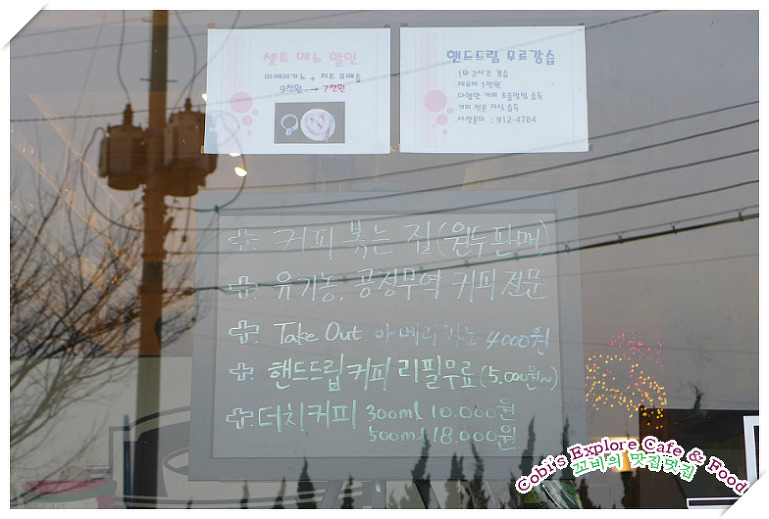 셋트 메뉴 할인
아메리카노 + 치즈 프레즐
9천원 → 7천원
핸드드립 무료강습
1회 2시간 강습
재료비 1만원
다양한 커피 추출방법 습득
커피 전문 지식 습득
사전문의 : 912-4784
커피 볶는 집 (원두판매)
유기농, 공정무역 커피 전문
Take Out 아메리카노 4000원
핸드드립 커피 리필무료 (5,000원~)
더치커피 300ml 10.000원
500ml 18.000원
Cobi's Explore Cafe & Food
꼬비의 맛집멋집